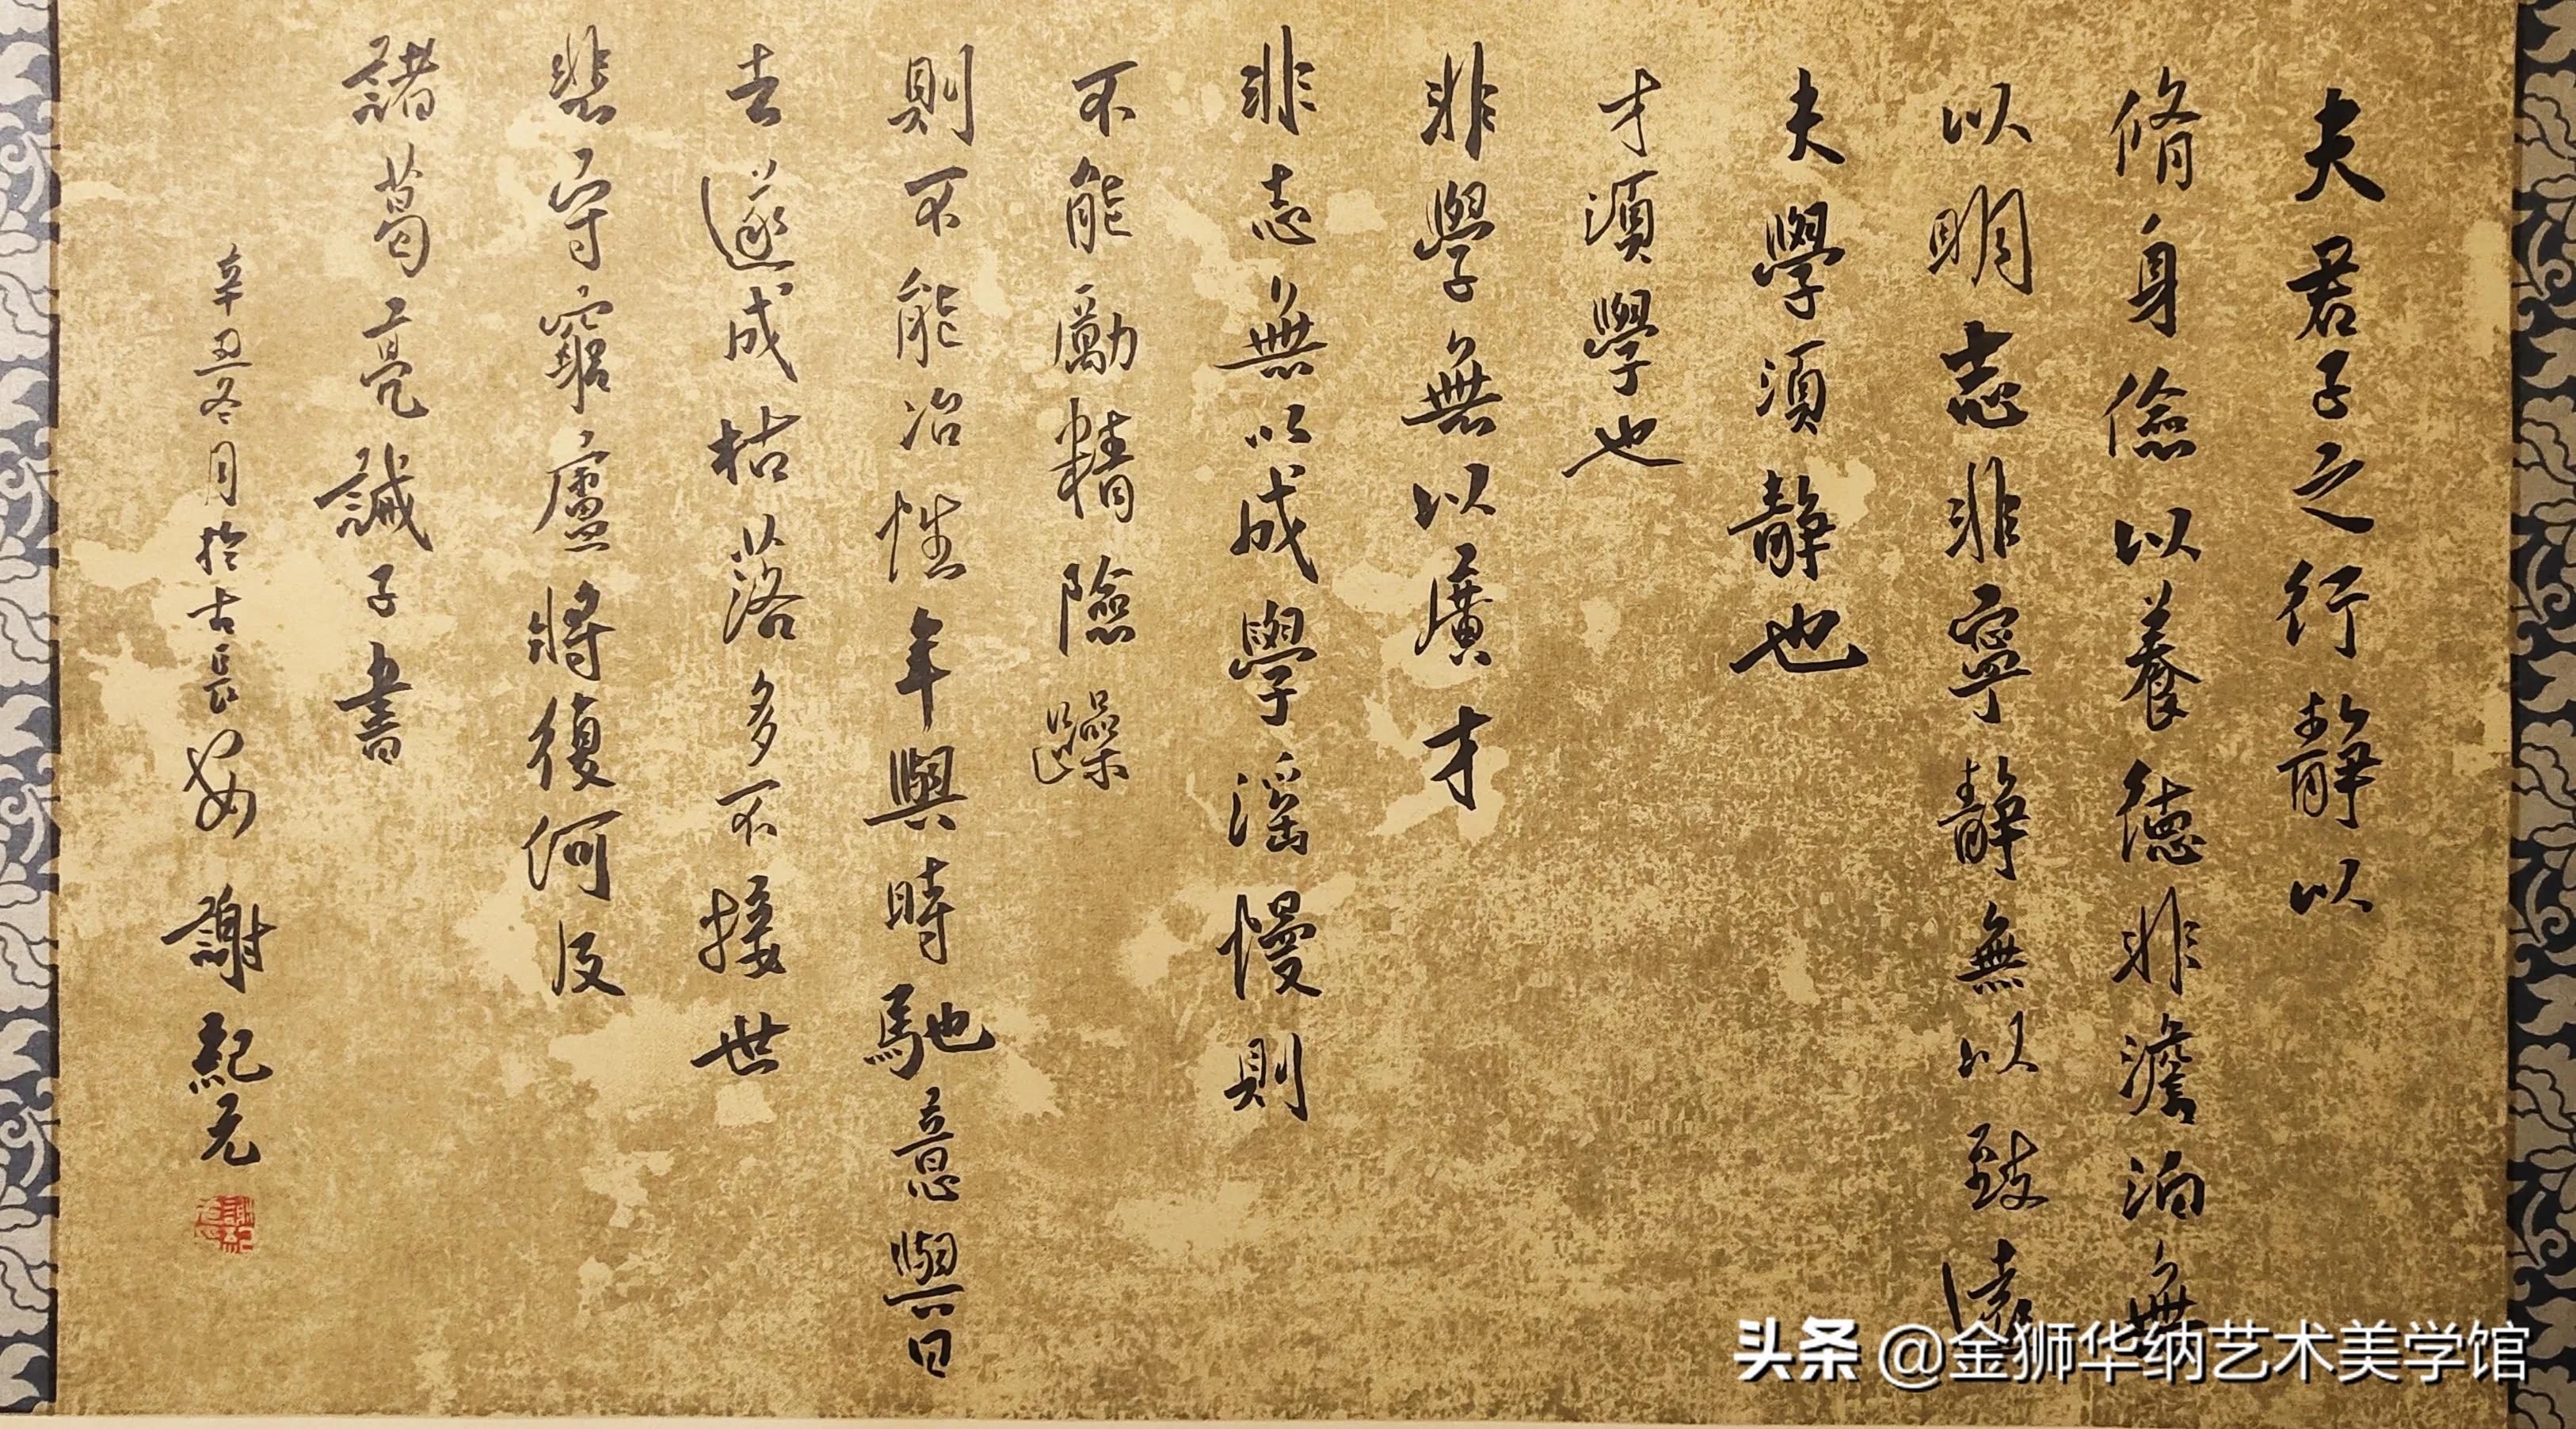 夫君子之行靜以
脩身儉以養德非澹泊無
以明志非寧靜無以致遠
夫學須靜也
才須學也
非學無以廣才
非志無以成學滛慢則
不能勵精險躁
則不能冶性年與時馳意與日
去遂成枯落多不接世
悲守窮廬將復何及
諸葛亮誡子書
辛丑冬月於古長安 謝紀元
头条 @金狮华纳艺术美学馆